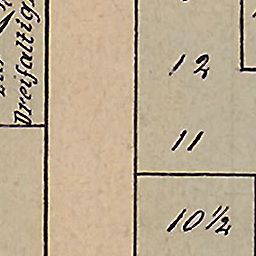 Dreifaltigs
12
11
10½